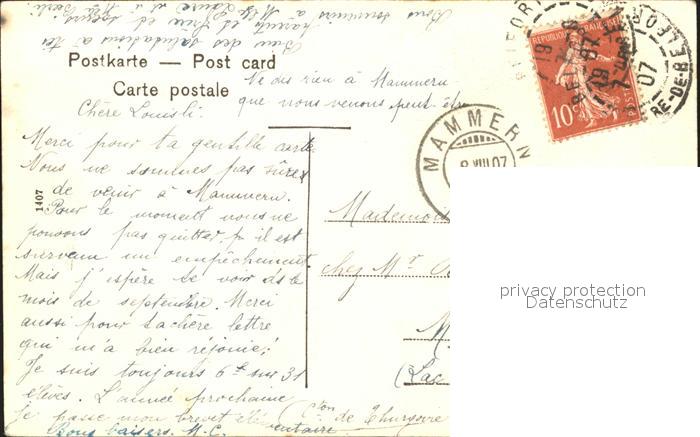 Bien des salutations à tes
parents et
Bons souvenirs à
Postkarte — Post card
Carte postale
Ne dis rien à Mammern
que nous venons peut-être
Chère Louisli.
Merci pour ta gentille carte.
Nous ne sommes pas sûres
de venir à Mammern.
Pour le moment nous ne
pouvons pas quitter, il est
survenu un empêchement
Mais j'espère te voir ds le
mois de septembre. Merci
aussi pour ta chère lettre
qui m'a bien réjouie;
Je suis toujours 6e sur 31
élèves. L'année prochaine
je passe mon brevet élémentaire.
Bons baisers. M.C.
1407
MAMMERN
8.VIII.07
RÉPUBLIQUE FRANÇAISE
10c
POSTES
BELFORT
07
RE-DE-B
Mademois
chez Mr
M.
(Lac
Cton de Thurgovie
privacy protection
Datenschutz